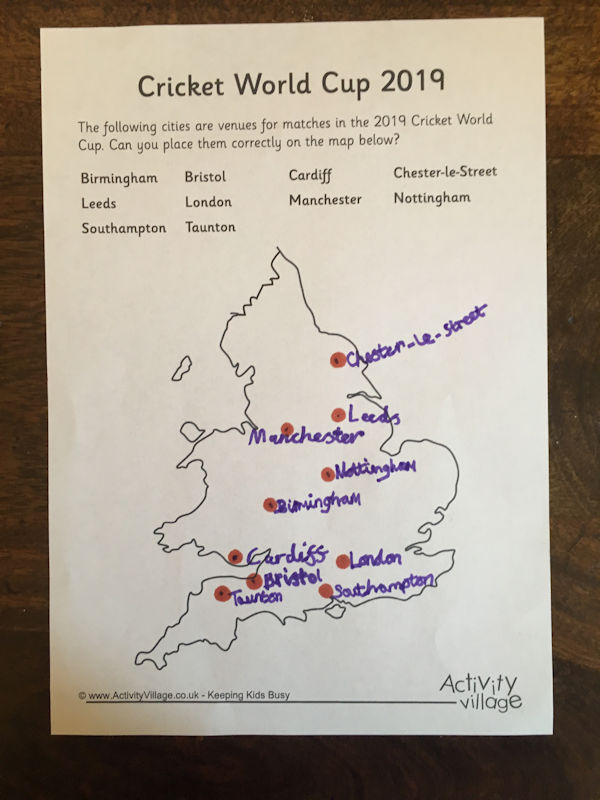 Cricket World Cup 2019
The following cities are venues for matches in the 2019 Cricket World
Cup. Can you place them correctly on the map below?
Birmingham Bristol Cardiff Chester-le-Street
Leeds London Manchester Nottingham
Southampton Taunton
Chester-le-street
Leeds
Manchester
Nottingham
Birmingham
Cardiff
London
Bristol
Taunton
Southampton
© www.ActivityVillage.co.uk - Keeping Kids Busy
Activity
village